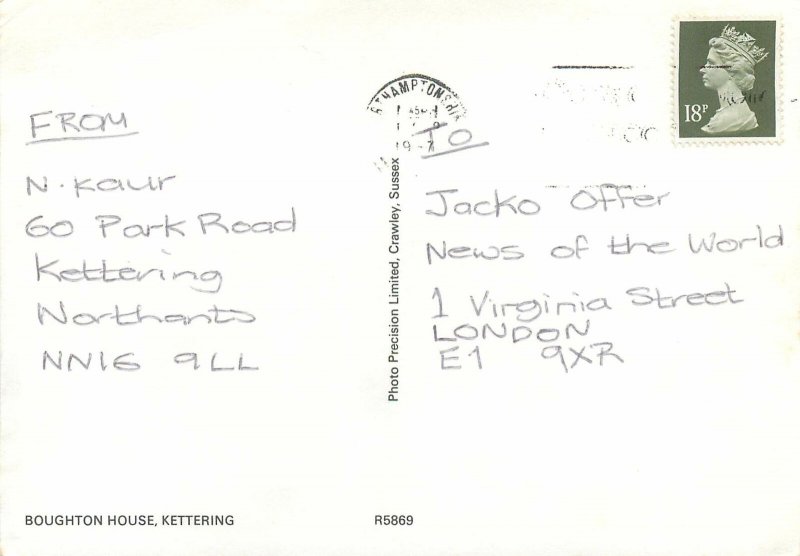 FROM
N. Kaur
60 Park Road
Kettering
Northants
NN16 9LL
BOUGHTON HOUSE, KETTERING
Photo Precision Limited, Crawley, Sussex
R5869
18P
TO
Jacko Offer
News of the World
1 Virginia Street
LONDON
E1 9XR